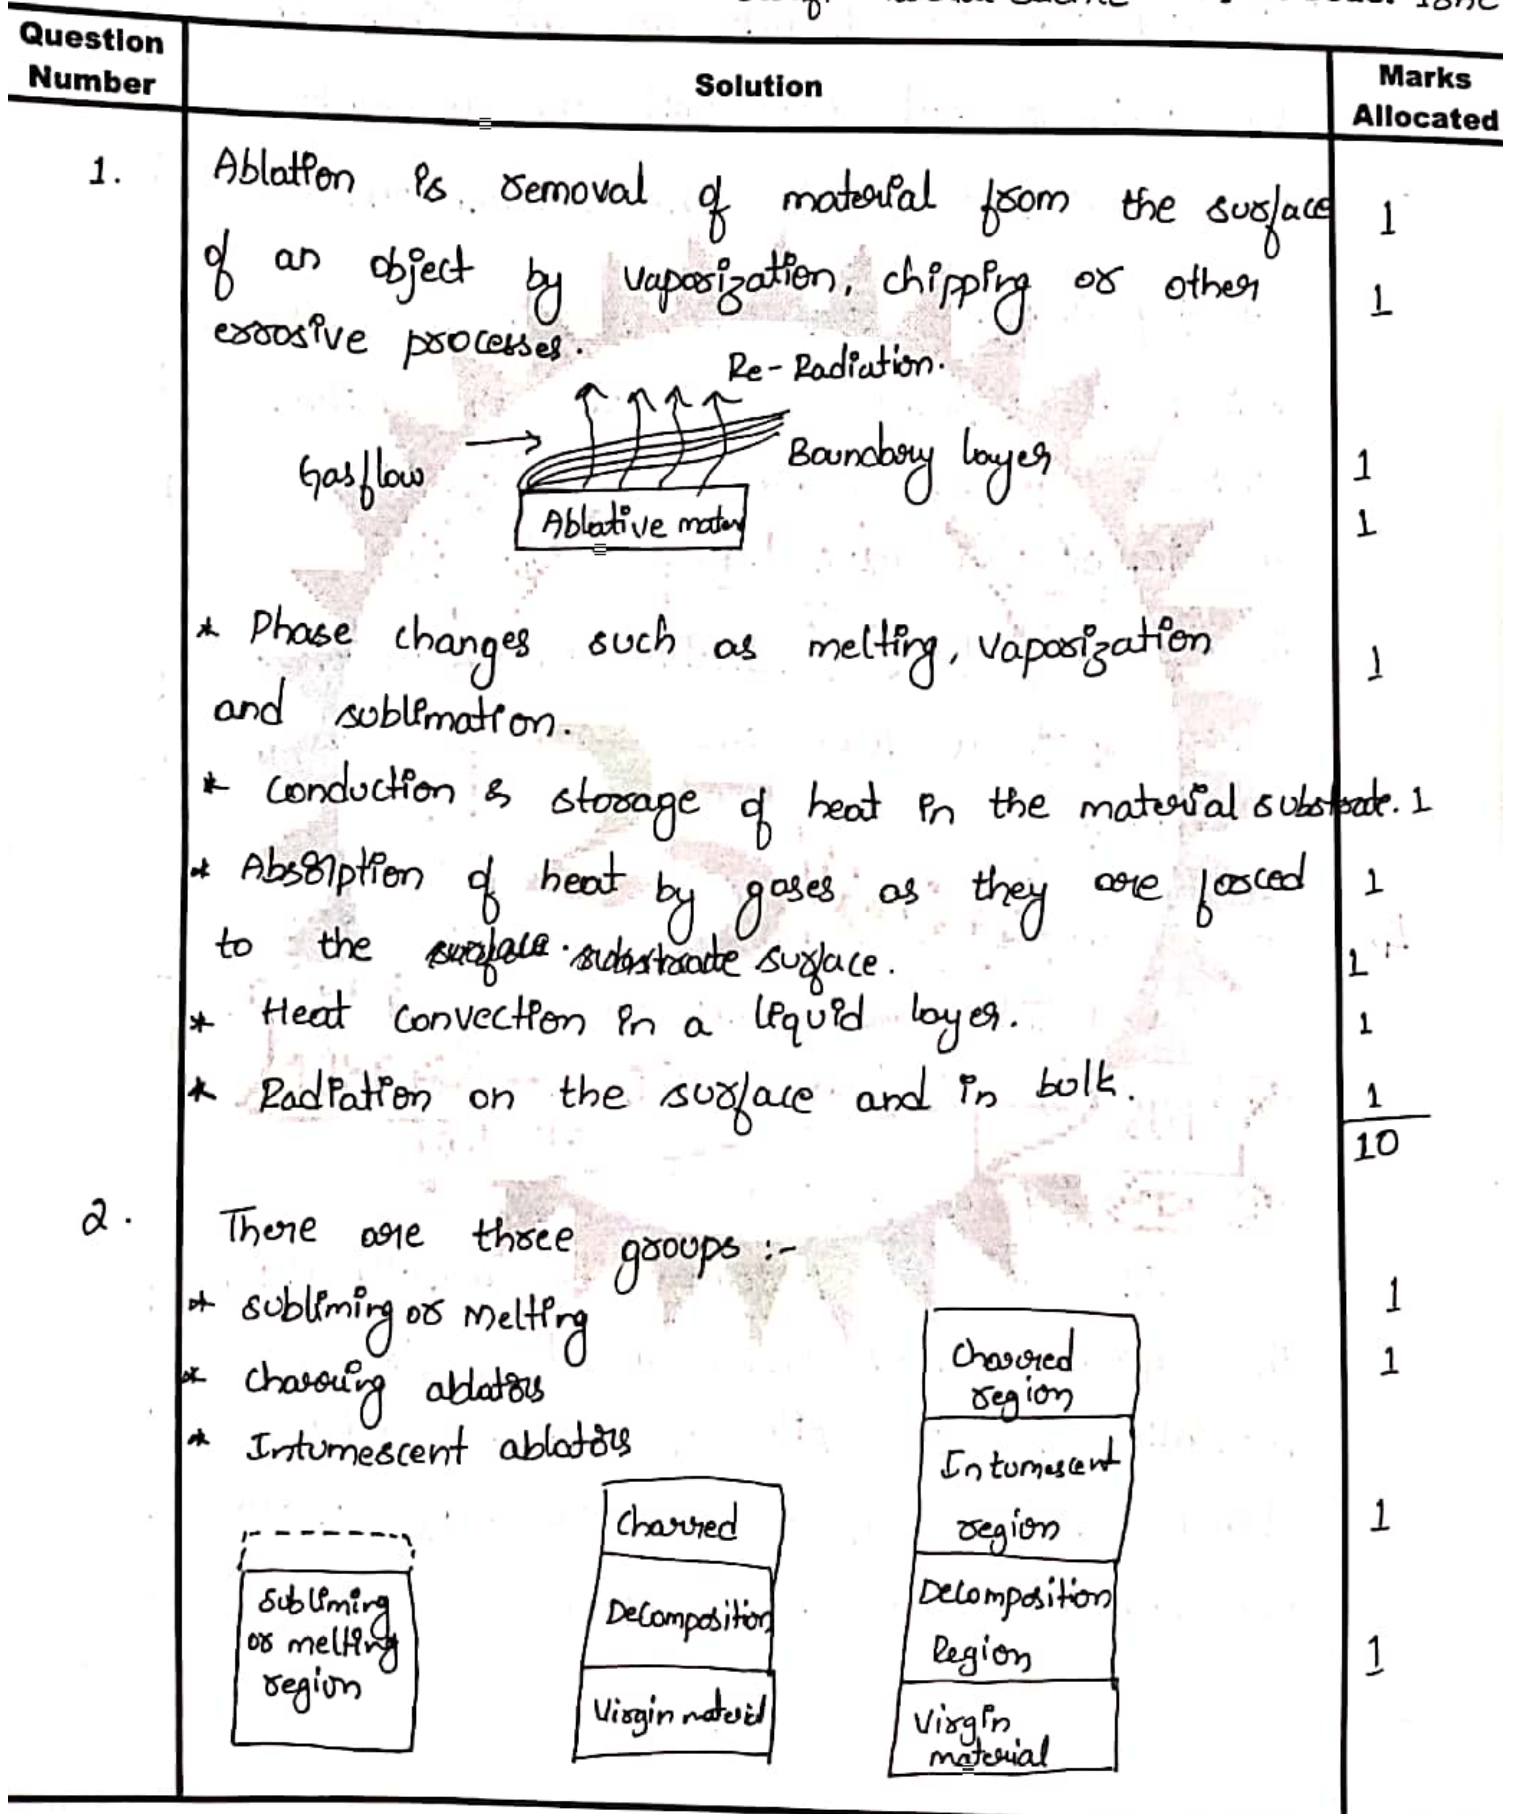 Question Number
Solution
Marks Allocated
1.
Ablation is removal of material from the surface 1
of an object by vaporization, chipping or other 1
errosive processes.
Re-Radiation.
Gas flow
Boundory layer 1
Ablative mater 1
* Phase changes such as melting, vaporization 1
and sublimation.
* Conduction & storage of heat in the material substrate. 1
* Absorption of heat by gases as they are forced 1
to the surface. 1
* Heat convection in a liquid layer. 1
* Radiation on the surface and in bulk. 1
10
2.
There are three groups :-
* subliming or Melting 1
* Charring ablators 1
* Intumescent ablators
Charred
region
Intumescent
region 1
Decomposition
Region 1
Virgin
material
Charred
Decomposition
Virgin material
Subliming
or melting
region